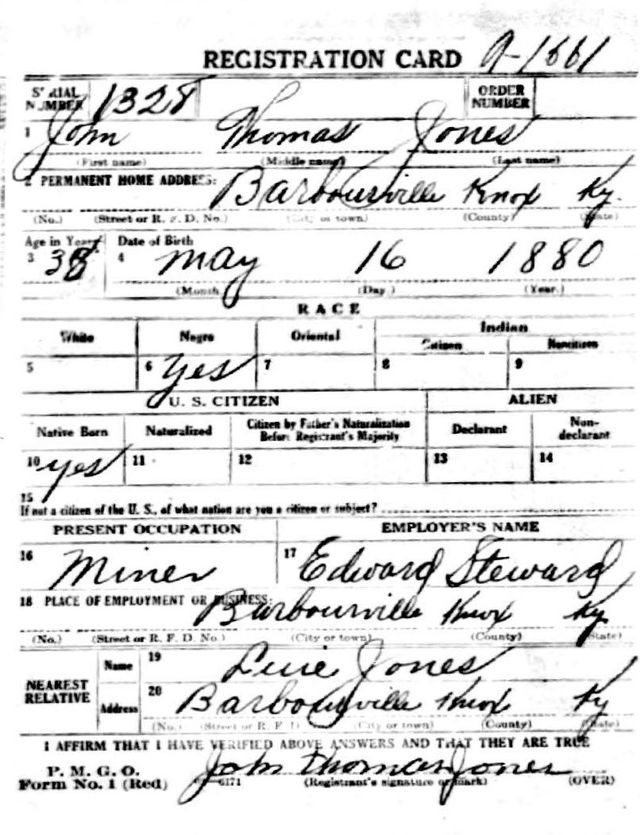 REGISTRATION CARD A-1661
SERIAL NUMBER 1328 ORDER NUMBER
1 John Thomas Jones
(First name) (Middle name) (Last name)
2 PERMANENT HOME ADDRESS: Barbourville Knox Ky.
(No.) (Street or R. F. D. No.) (City or town) (County) (State)
Age in Years Date of Birth
3 38 4 May 16 1880
(Month) (Day.) (Year.)
RACE
White Negro Oriental Indian
Citizen Noncitizen
5 6 Yes 7 8 9
U. S. CITIZEN ALIEN
Native Born Naturalized Citizen by Father's Naturalization Before Registrant's Majority Declarant Non-declarant
10 yes 11 12 13 14
15
If not a citizen of the U. S., of what nation are you a citizen or subject?
PRESENT OCCUPATION EMPLOYER'S NAME
16 Miner 17 Edward Steward
18 PLACE OF EMPLOYMENT OR BUSINESS: Barbourville Knox Ky
(No.) (Street or R. F. D. No.) (City or town) (County) (State)
NEAREST RELATIVE Name 19 Jones
Address 20 Barbourville Knox Ky
(No.) (Street or R. F. D. No.) (City or town) (County) (State)
I AFFIRM THAT I HAVE VERIFIED ABOVE ANSWERS AND THAT THEY ARE TRUE
P. M. G. O.
Form No. 1 (Red) 3-6171 John Thomas Jones (Registrant's signature or mark) (OVER)